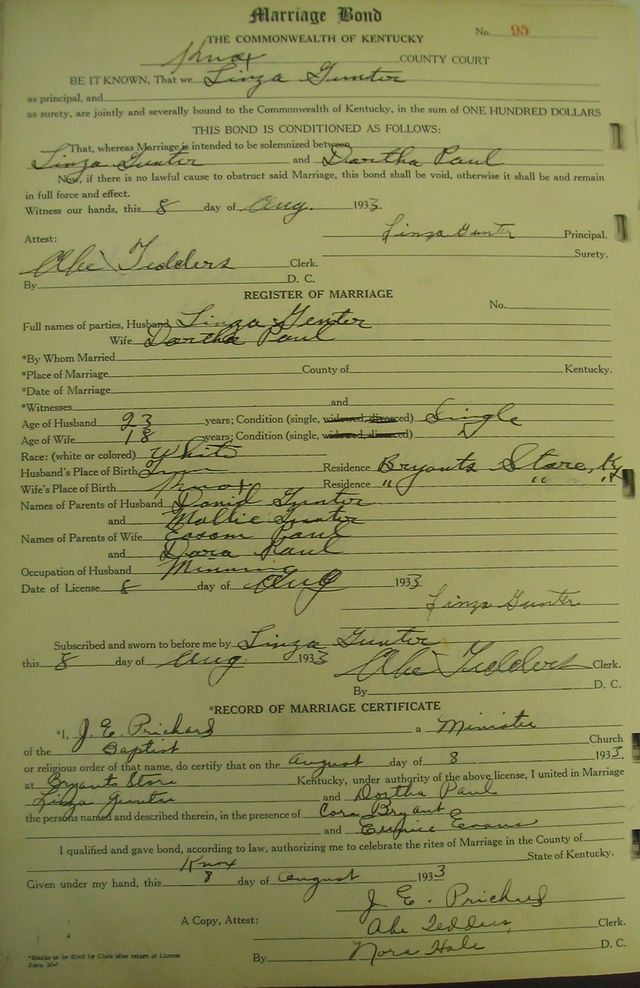 Marriage Bond
No. 95
THE COMMONWEALTH OF KENTUCKY
Knox COUNTY COURT
BE IT KNOWN, That we Linza Gunter
as principal, and
as surety, are jointly and severally bound to the Commonwealth of Kentucky, in the sum of ONE HUNDRED DOLLARS
THIS BOND IS CONDITIONED AS FOLLOWS:
That, whereas Marriage is intended to be solemnized between
Linza Gunter and Dartha Paul
Now, if there is no lawful cause to obstruct said Marriage, this bond shall be void, otherwise it shall be and remain
in full force and effect.
Witness our hands, this 8 day of Aug. 1933
Linza Gunter Principal.
Attest:
Surety.
Abe Tedders Clerk.
By D. C.
REGISTER OF MARRIAGE
No.
Full names of parties, Husband Linza Genter
Wife Dartha Paul
*By Whom Married
*Place of Marriage County of Kentucky.
*Date of Marriage
*Witnesses and
Age of Husband 23 years; Condition (single, widowed, divorced) Single
Age of Wife 18 years; Condition (single, widowed, divorced) "
Race: (white or colored) White
Husband's Place of Birth Residence Bryants Store, Ky
Wife's Place of Birth Knox Residence " " "
Names of Parents of Husband David Gunter
and Mollie Gunter
Names of Parents of Wife Eason Paul
and Dora Paul
Occupation of Husband Minning
Date of License 8 day of Aug 1933
Linza Gunter
Subscribed and sworn to before me by Linza Gunter
this 8 day of Aug 1933 Abe Tedders Clerk.
By D. C.
*RECORD OF MARRIAGE CERTIFICATE
*I, J. E. Prichard a Minister
of the Baptist Church
or religious order of that name, do certify that on the August day of 8 1933.
at Bryants Store Kentucky, under authority of the above license, I united in Marriage
Linza Gunter and Dortha Paul
the persons named and described therein, in the presence of Cora Bryant
and Eunice Evans
I qualified and gave bond, according to law, authorizing me to celebrate the rites of Marriage in the County of
Knox State of Kentucky.
Given under my hand, this 8 day of August 1933
J. E. Prichard
A Copy, Attest: Abe Tedders, Clerk.
By Nora Hale D. C.
*Blanks to be filled by Clerk after return of License